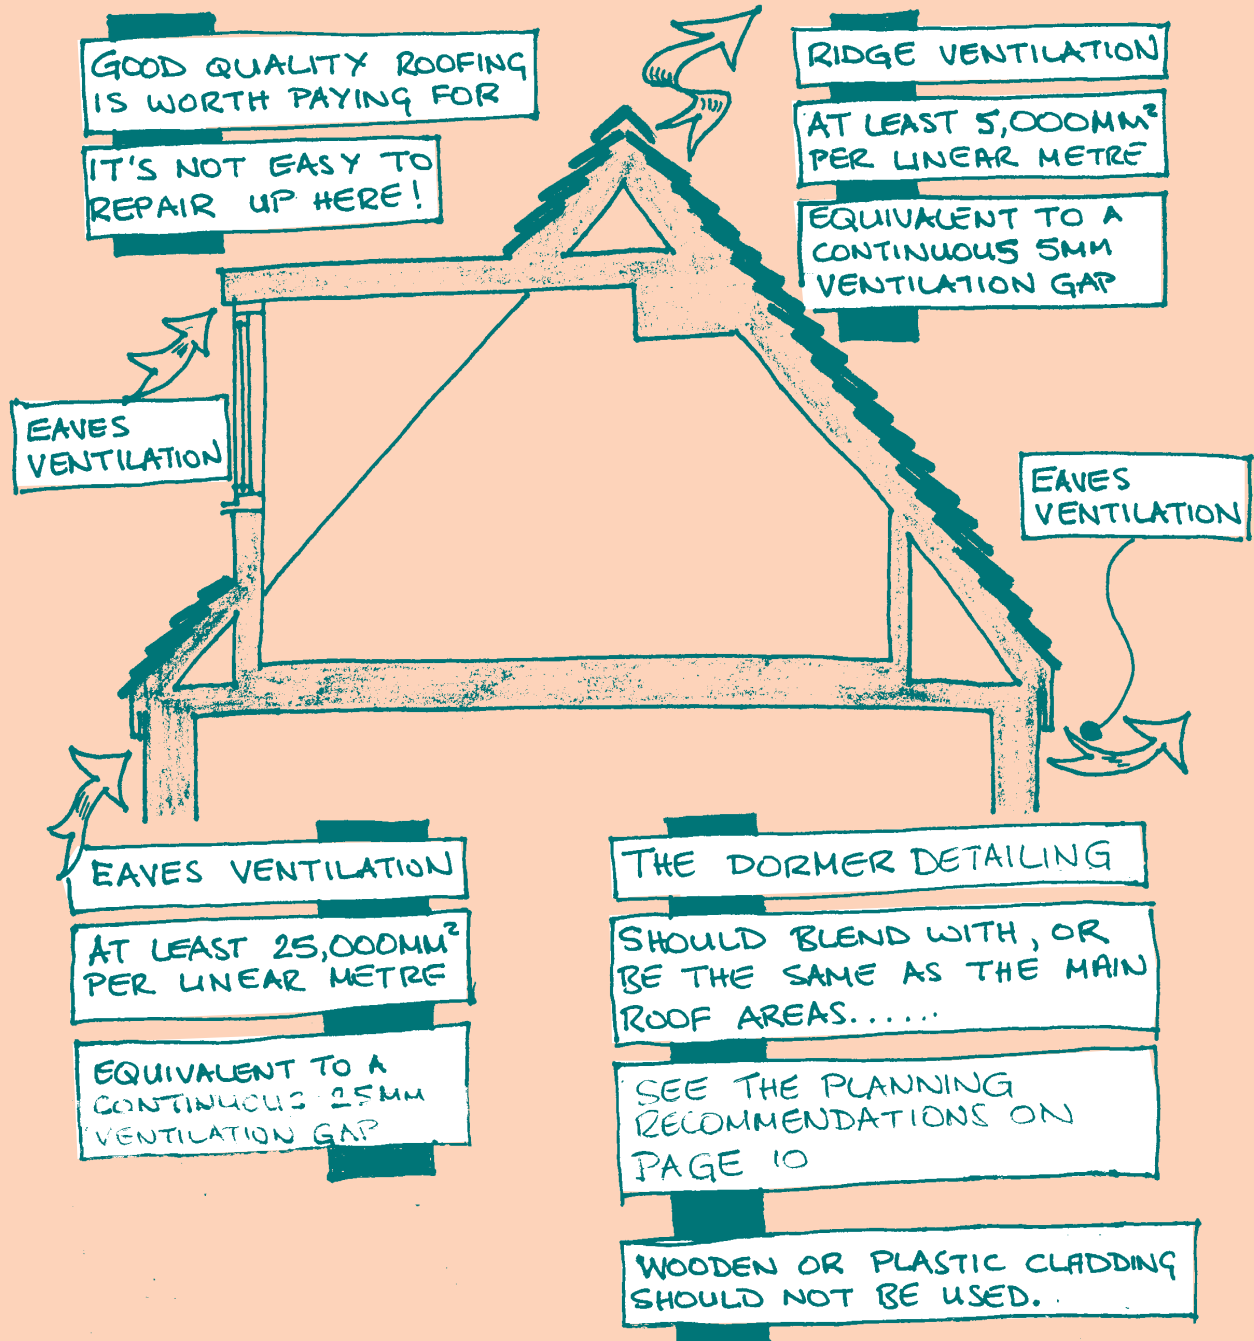 GOOD QUALITY ROOFING
IS WORTH PAYING FOR
IT'S NOT EASY TO
REPAIR UP HERE!
RIDGE VENTILATION
AT LEAST 5,000MM²
PER LINEAR METRE
EQUIVALENT TO A
CONTINUOUS 5MM
VENTILATION GAP
EAVES
VENTILATION
EAVES
VENTILATION
EAVES VENTILATION
AT LEAST 25,000MM²
PER LINEAR METRE
EQUIVALENT TO A
CONTINUOUS 25MM
VENTILATION GAP
THE DORMER DETAILING
SHOULD BLEND WITH, OR
BE THE SAME AS THE MAIN
ROOF AREAS......
SEE THE PLANNING
RECOMMENDATIONS ON
PAGE 10
WOODEN OR PLASTIC CLADDING
SHOULD NOT BE USED.